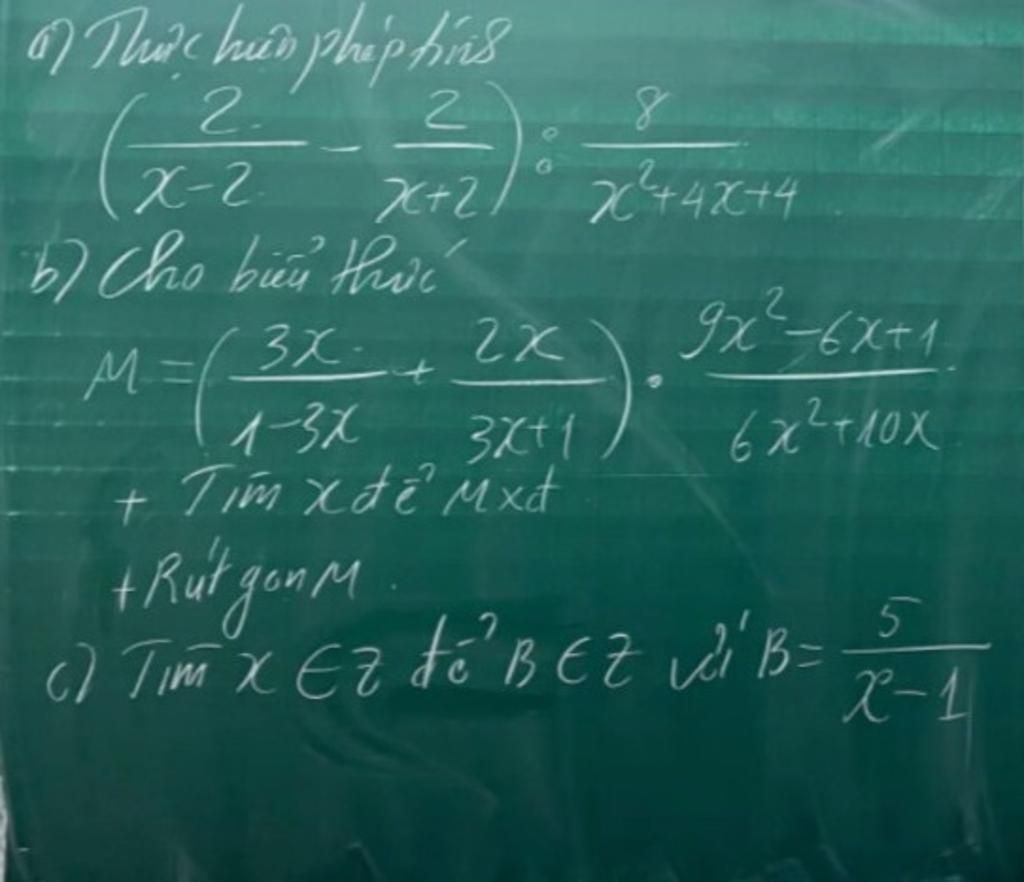 a) Thực hiện phép tính
(2/(x-2) - 2/(x+2)) : 8/(x²+4x+4)
b) Cho biểu thức
M = (3x/(1-3x) + 2x/(3x+1)) . (9x²-6x+1)/(6x²+10x)
+ Tìm x để M xđ
+ Rút gọn M.
c) Tìm x ∈ Z để B ∈ Z với B = 5/(x-1)